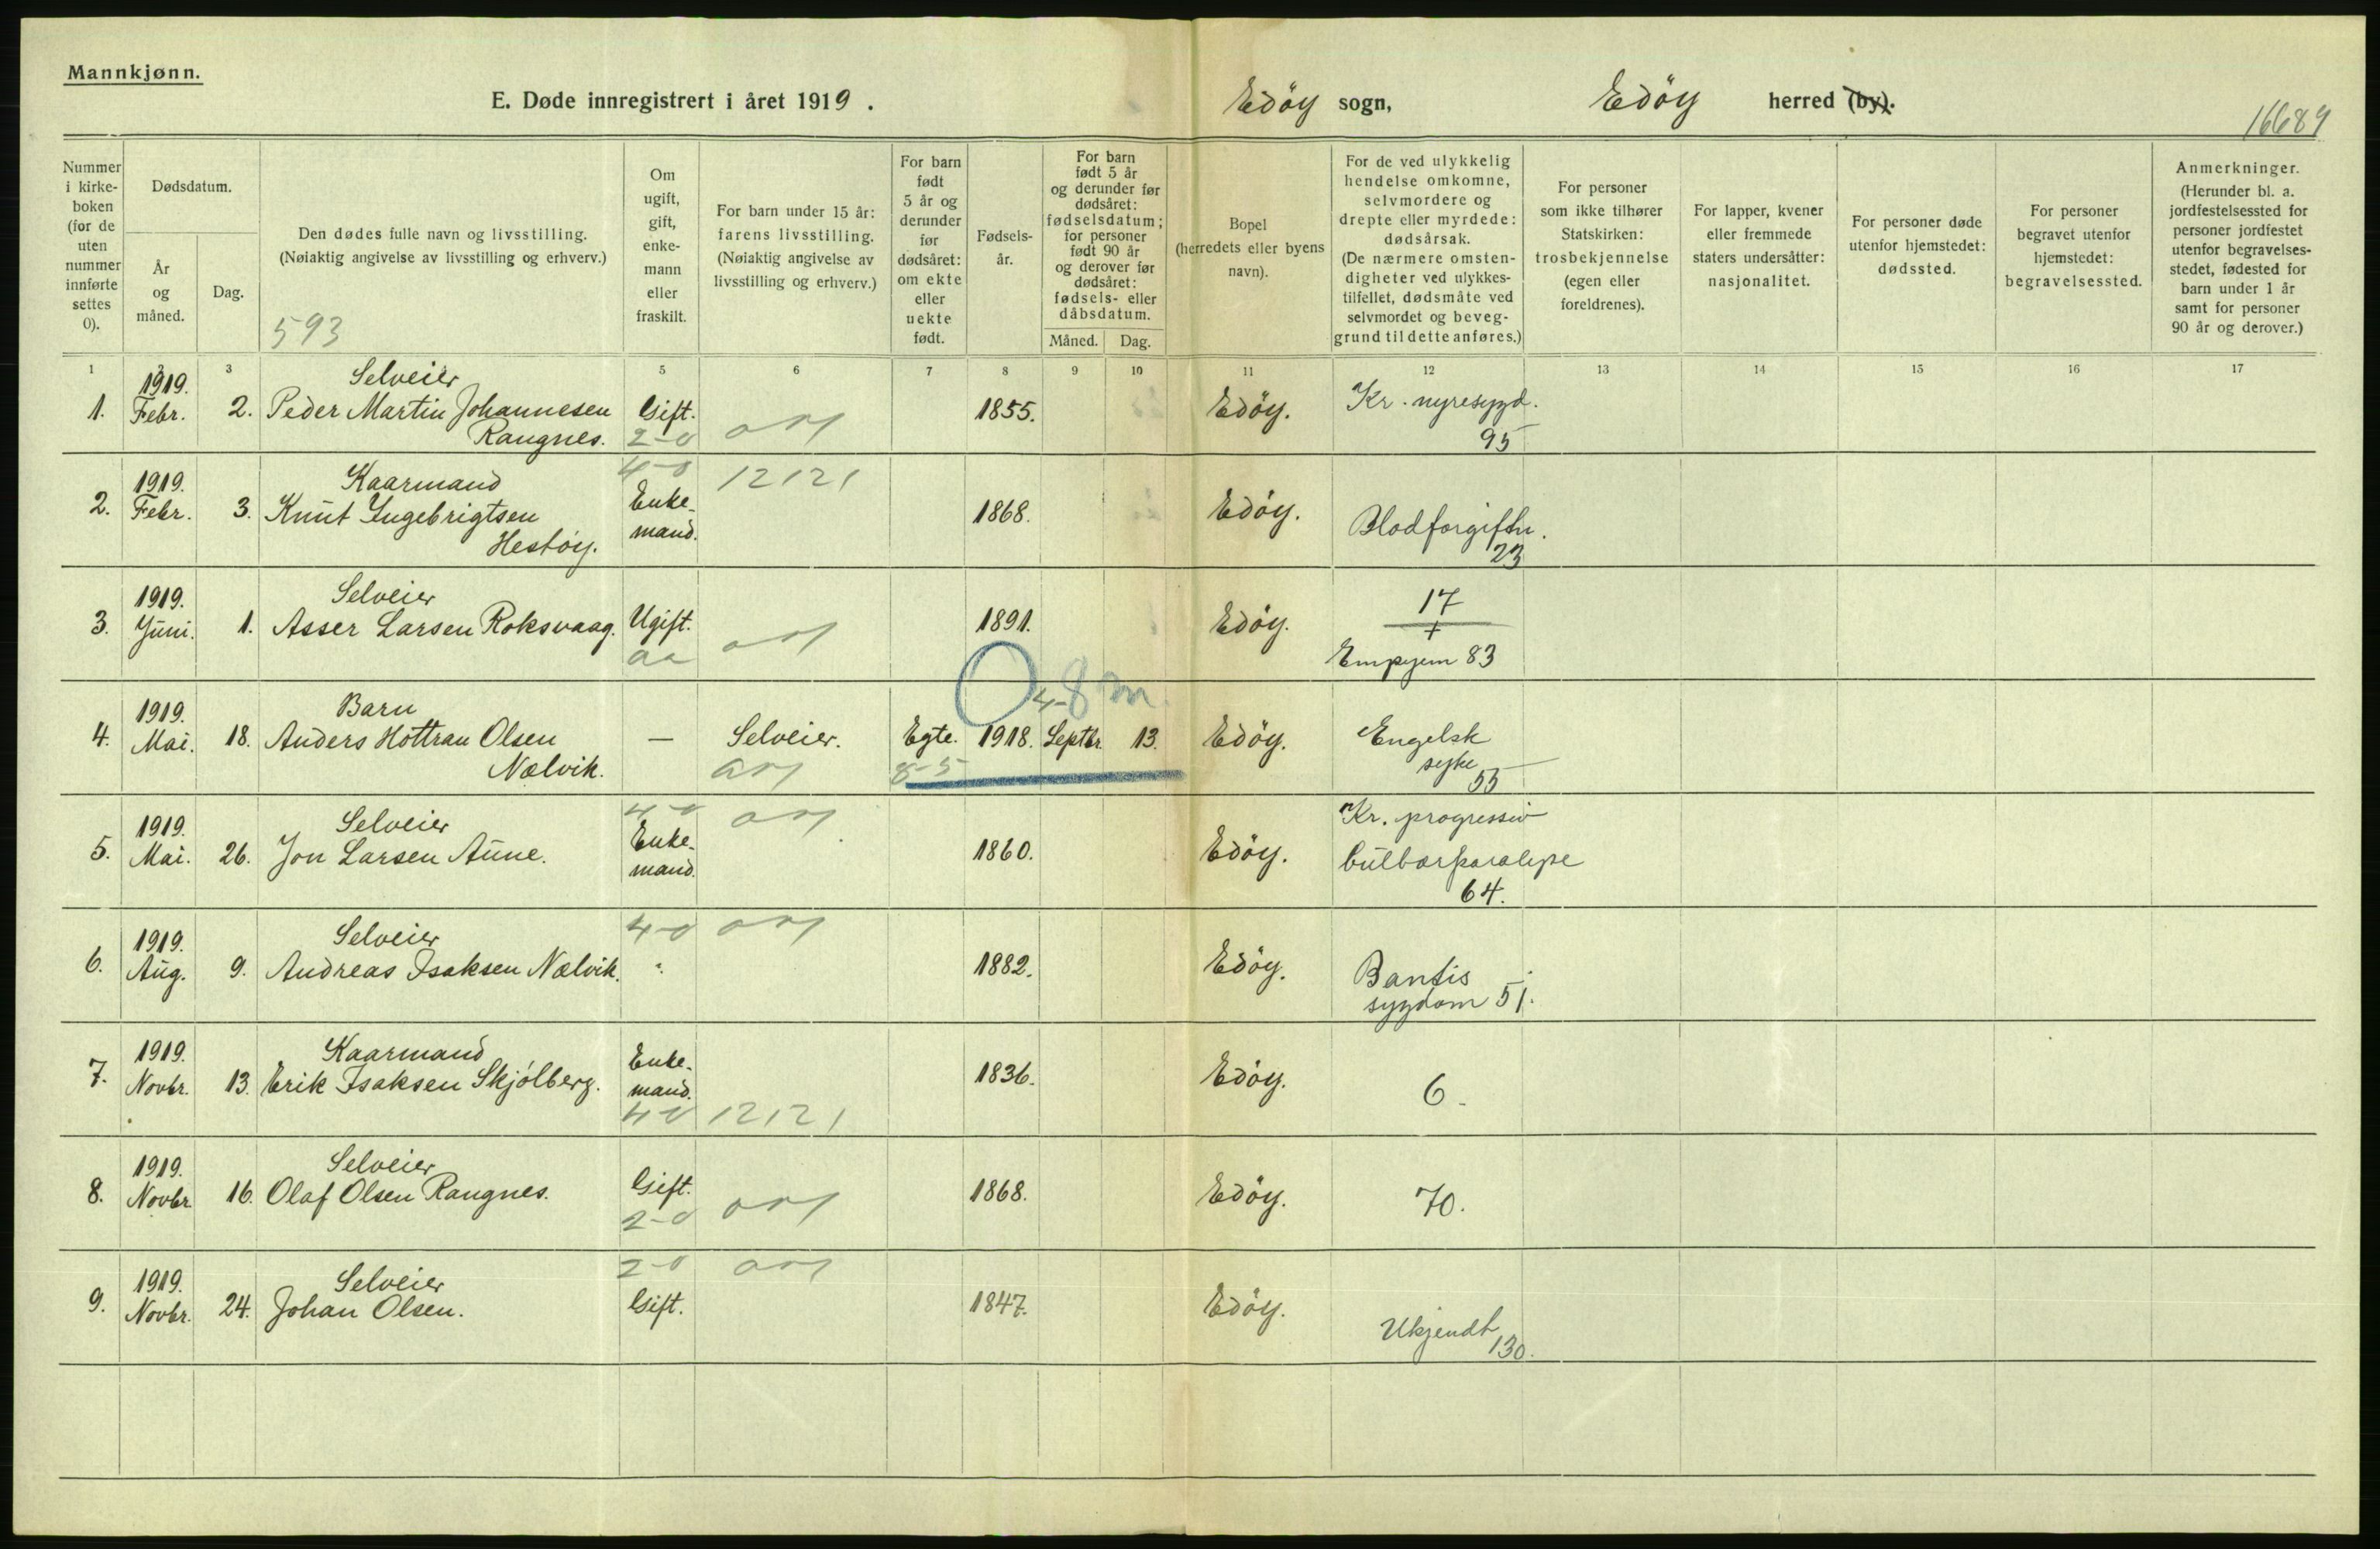 Mannkjønn.
E. Døde innregistrert i året 1919.
Edøy sogn,
Edøy herred (by).
16689
Nummer i kirke-boken (for de uten nummer innførte settes 0).
Dødsdatum.
År og måned.
Dag.
Den dødes fulle navn og livsstilling.
(Nøiaktig angivelse av livsstilling og erhverv.)
593
Om ugift, gift, enke-mann eller fraskilt.
For barn under 15 år: farens livsstilling. (Nøiaktig angivelse av livsstilling og erhverv.)
For barn født 5 år og derunder før dødsåret: om ekte eller uekte født.
Fødsels-år.
For barn født 5 år og derunder før dødsåret: fødselsdatum; for personer født 90 år og derover før dødsåret: fødsels- eller dåbsdatum.
Måned.
Dag.
Bopel (herredets eller byens navn).
For de ved ulykkelig hendelse omkomne, selvmordere og drepte eller myrdede: dødsårsak. (De nærmere omsten-digheter ved ulykkes-tilfellet, dødsmåte ved selvmordet og beveg-grund til dette anføres.)
For personer som ikke tilhører Statskirken: trosbekjennelse (egen eller foreldrenes).
For lapper, kvener eller fremmede staters undersåtter: nasjonalitet.
For personer døde utenfor hjemstedet: dødssted.
For personer begravet utenfor hjemstedet: begravelsessted.
Anmerkninger. (Herunder bl. a. jordfestelsessted for personer jordfestet utenfor begravelses-stedet, fødested for barn under 1 år samt for personer 90 år og derover.)
1 2 3 5 6 7 8 9 10 11 12 13 14 15 16 17
1. 1919. Febr. 2. Selveier Peder Martin Johannesen Rangnes. Gift. 2-0 1855. Edøy. Kr. nyresygd. 95
2. 1919. Febr. 3. Kaarmand Knut Ingebrigtsen Hestøy. 4-0 Enke-mand. 12121 1868. Edøy. Blodforgiftn. 23
3. 1919. Juni. 1. Selveier Asser Larsen Roksvaag. Ugift. 1891. Edøy. 17 + Empyem 83
4. 1919. Mai. 18. Barn Anders Hottran Olsen Nælvik. — Selveier. Egte. 8-5 1918. Septbr. 13. 0 4-8 m. Edøy. Engelsk syke 55
5. 1919. Mai. 26. Selveier Jon Larsen Aune. 4-0 Enke-mand. 1860. Edøy. Kr. progressiv bulbærparalyse 64.
6. 1919. Aug. 9. Selveier Andreas Isaksen Nælvik. 4-0 " 1882. Edøy. Bantis sygdom 51.
7. 1919. Novbr. 13. Kaarmand Erik Isaksen Skjølberg. Enke-mand. 4-0 12121 1836. Edøy. 6.
8. 1919. Novbr. 16. Selveier Olaf Olsen Rangnes. Gift. 2-0 1868. Edøy. 70.
9. 1919. Novbr. 24. Selveier Johan Olsen. 2-0 Gift. 1847. Edøy. Ukjendt 130.